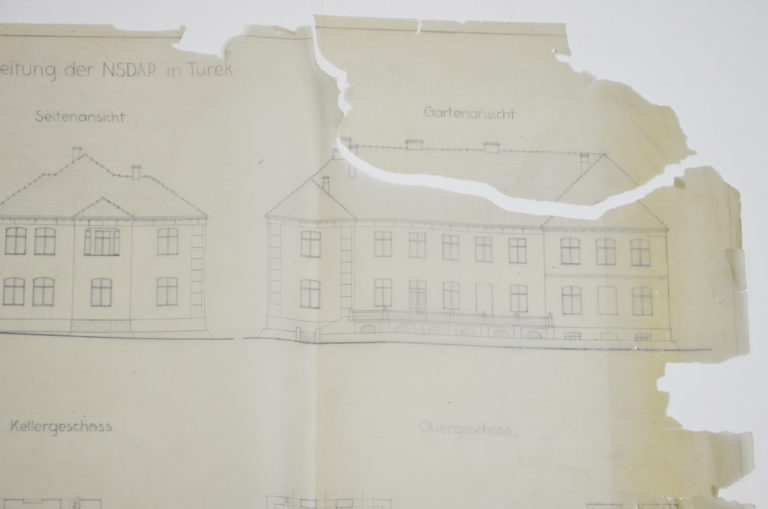 eitung der NSDAP in Turek
Seitenansicht
Gartenansicht
Kellergeschoss
Obergeschoss